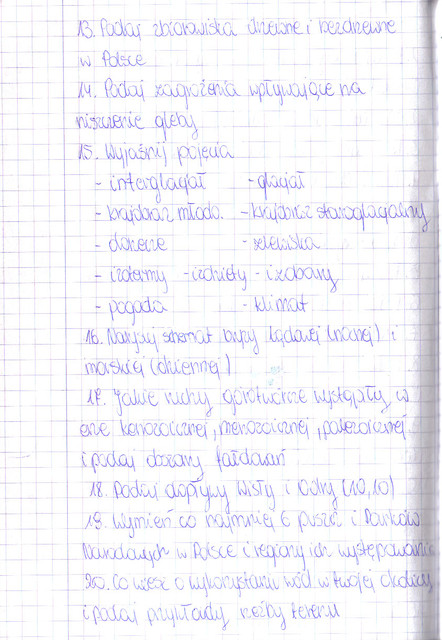 13. Podaj zbiorowiska drzewne i bezdrzewne
w Polsce
14. Podaj zagrożenia wpływające na
niszczenie gleby
15. Wyjaśnij pojęcia
- interglacjał - glacjał
- krajobraz młodo. - krajobraz staroglacjalny
- dorzecze - zlewiska
- izotermy - izohiety - izobary
- pogoda - klimat
16. Narysuj schemat bryzy lądowej (nocnej) i
morskiej (dziennej)
17. Jakie ruchy górotwórcze wystąpiły w
erze kenozoicznej, mezozoicznej, paleozoicznej
i podaj obszary fałdowań
18. Podaj dopływy Wisły i Odry (10,10)
19. Wymień co najmniej 6 puszcz i Parków
Narodowych w Polsce i regiony ich występowania
20. Co wiesz o wykorzystaniu wód w twojej okolicy
i podaj przykłady rzeźby terenu